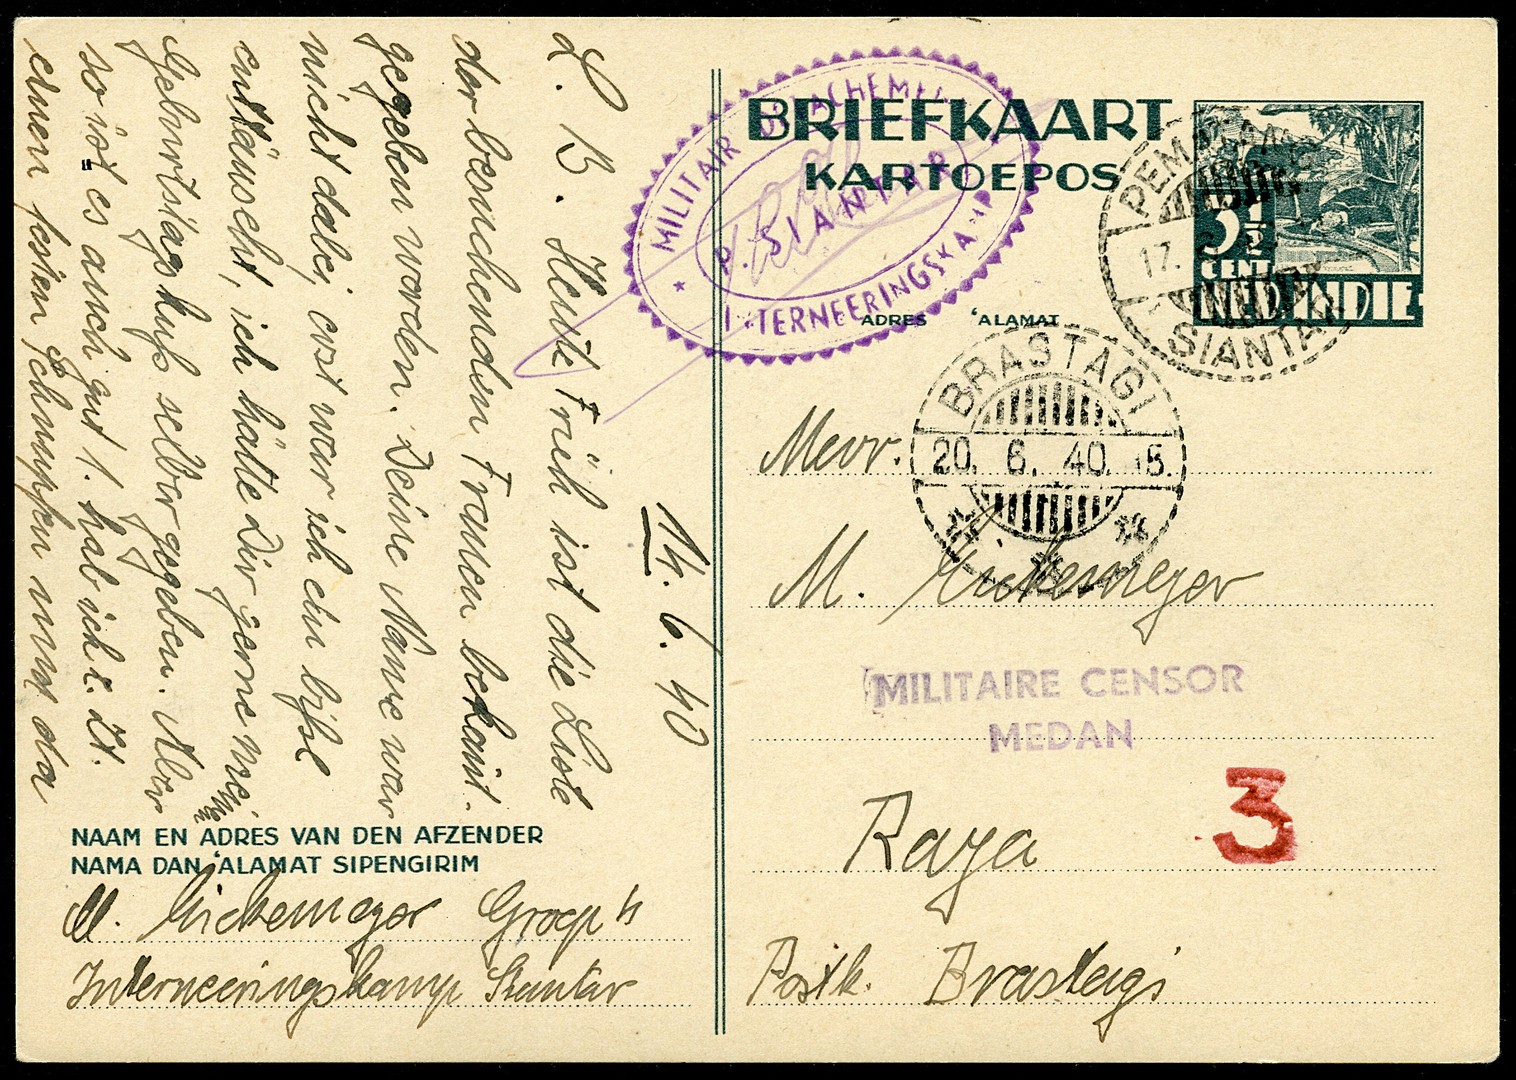 14. 6. 40
L. B. Heute Früh ist die Liste
der besuchenden Frauen bekannt
gegeben worden. Deine Name war
nicht dabei, erst war ich ein bissl
enttäuscht, ich hätte Dir gerne nen
Geburtstagskuß selber gegeben. Aber
so ist es auch gut 1. hab ich z. Zt.
einen festen Schnuppen und da
NAAM EN ADRES VAN DEN AFZENDER
NAMA DAN 'ALAMAT SIPENGIRIM
M. Eickemeyer Groep 4
Interneeringskamp Siantar
BRIEFKAART
KARTOEPOS
MILITAIR DETACHEMENT
P. SIANTAR
INTERNEERINGSKAMP
3½
CENT
NED. INDIE
PEMATANG
17.
SIANTAR
ADRES 'ALAMAT
BRASTAGI
20. 6. 40. 15.
Mevr.
M. Eickemeyer
MILITAIRE CENSOR
MEDAN
3
Raya
Postk. Brastagi